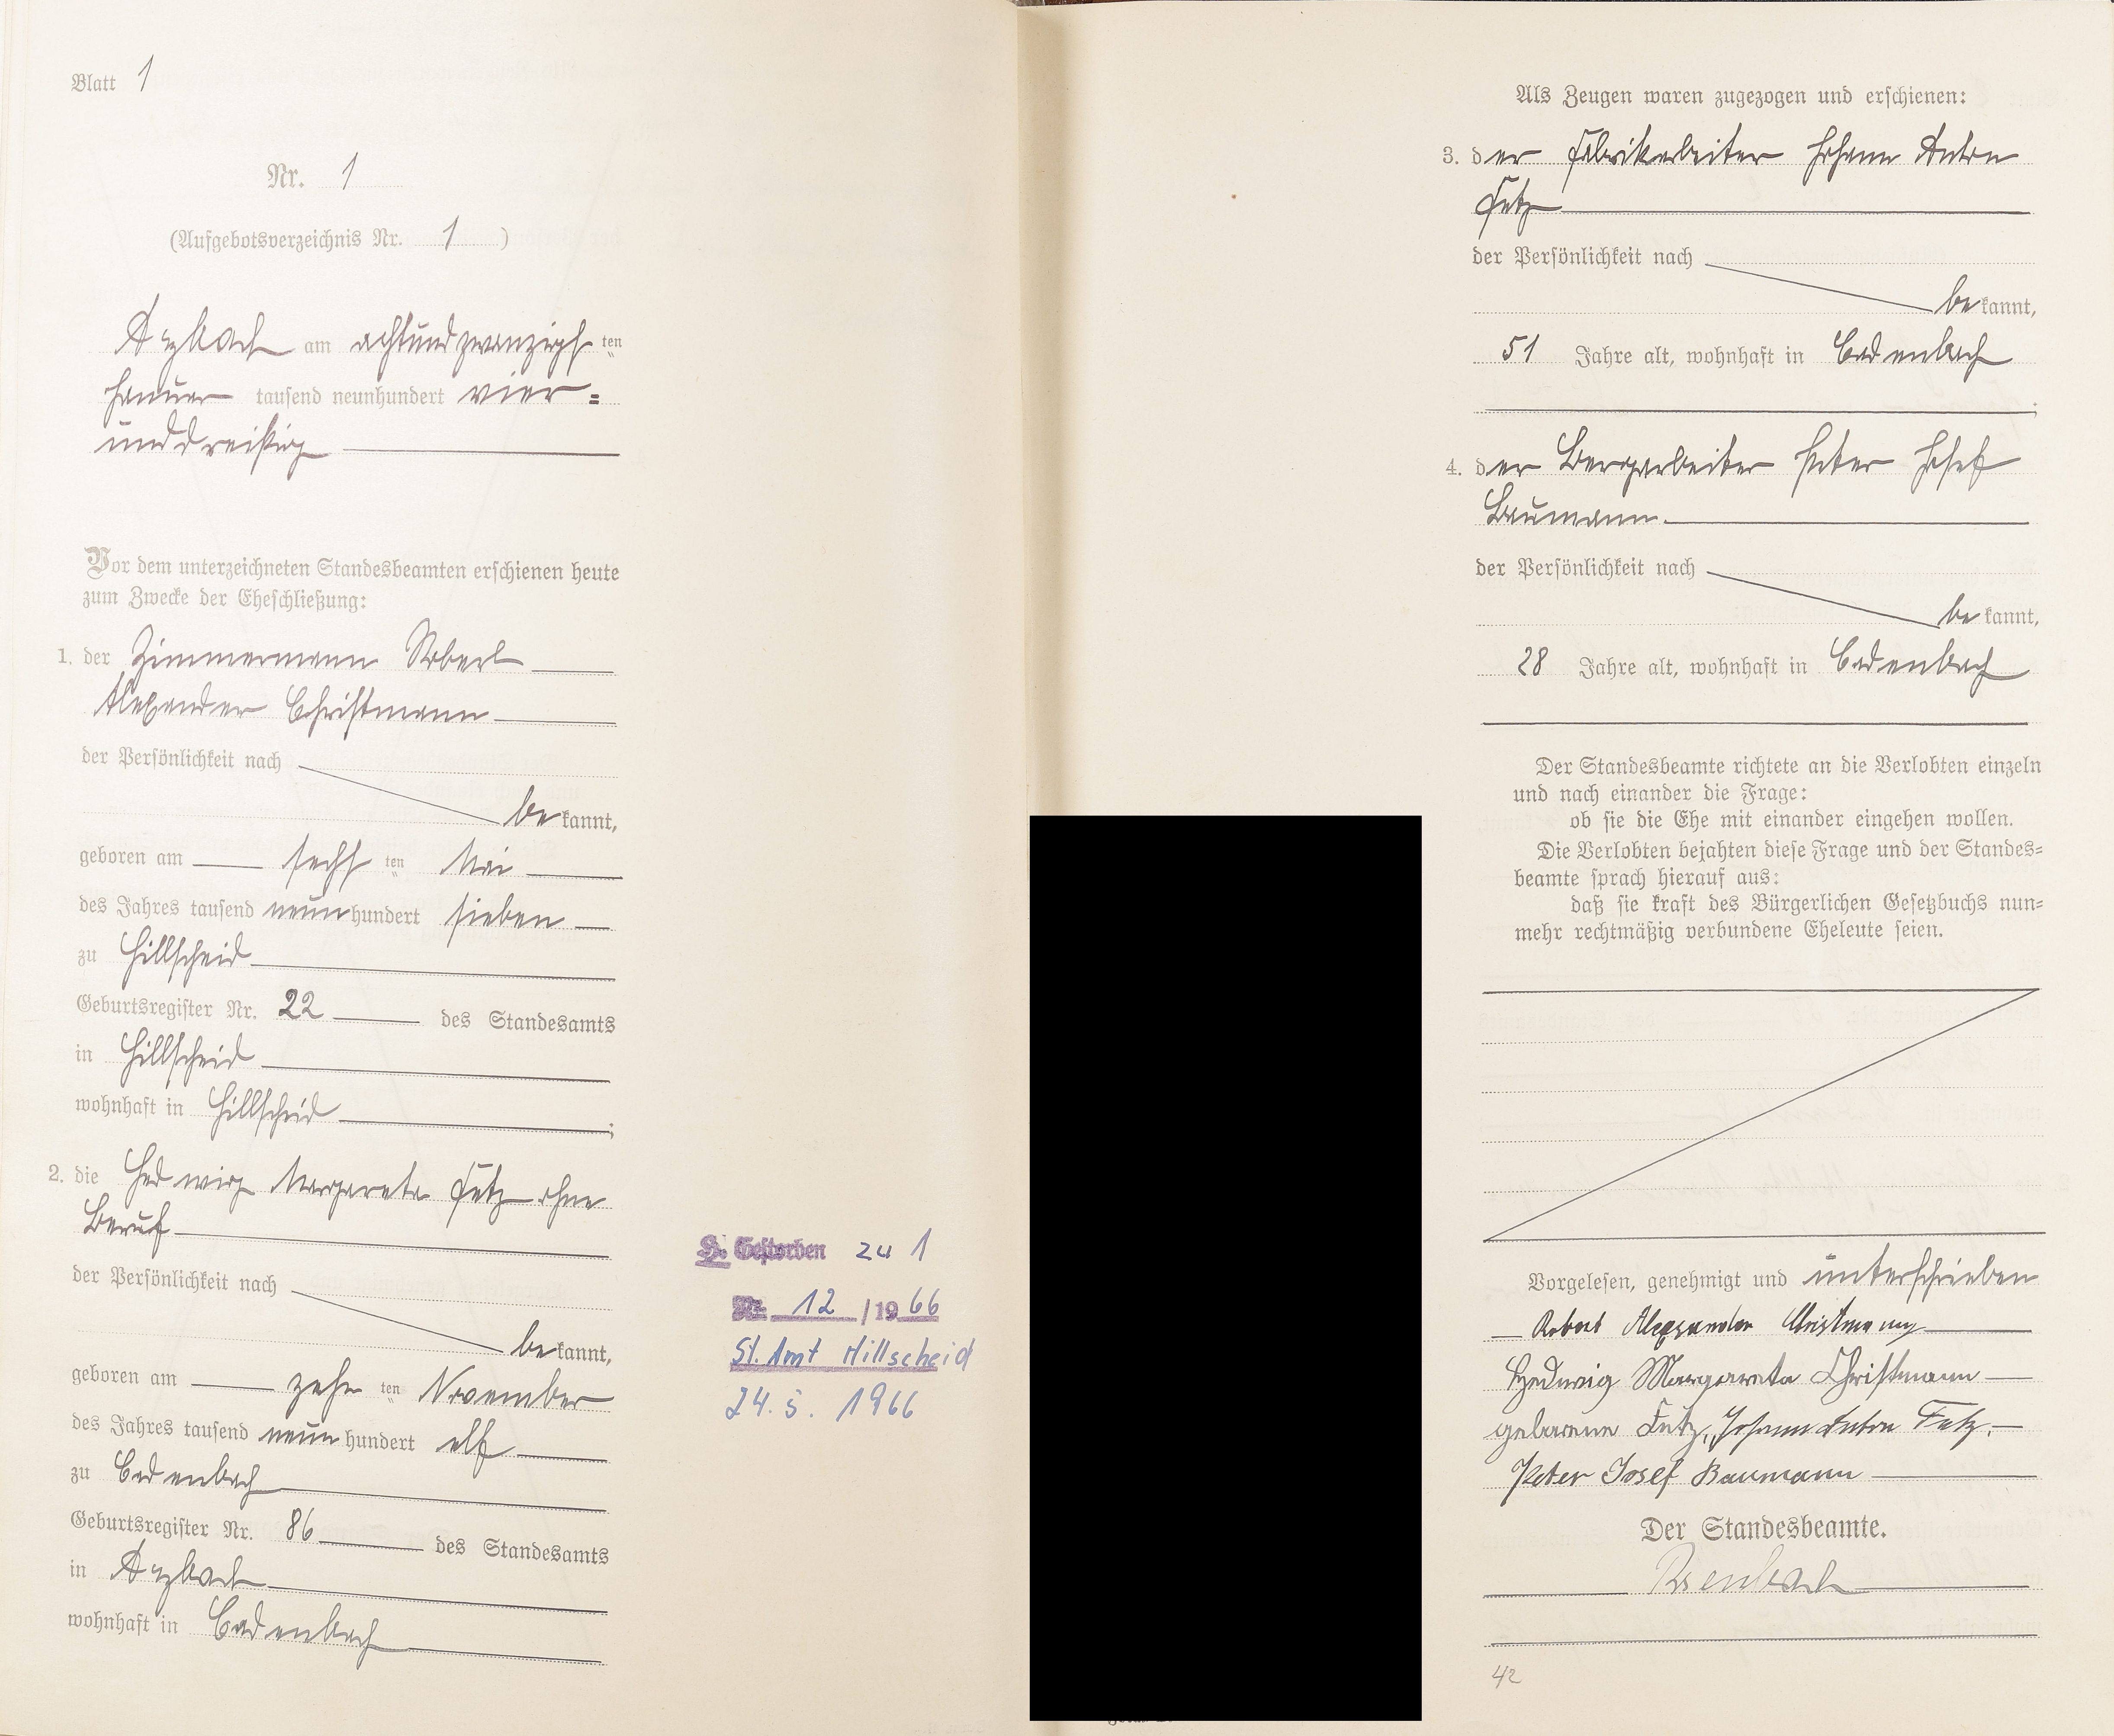 Blatt 1
Nr. 1
(Aufgebotsverzeichnis Nr. 1 )
Arzbach am achtundzwanzigsten
Januar tausend neunhundert vier=
unddreißig
Vor dem unterzeichneten Standesbeamten erschienen heute
zum Zwecke der Eheschließung:
1. der Zimmermann Robert
Alexander Christmann
der Persönlichkeit nach
bekannt,
geboren am sechsten Mai
des Jahres tausend neunhundert sieben
zu Hillscheid
Geburtsregister Nr. 22 des Standesamts
in Hillscheid
wohnhaft in Hillscheid ;
2. die Hedwig Margareta Fetz ohne
Beruf
der Persönlichkeit nach
bekannt,
geboren am zehnten November
des Jahres tausend neunhundert elf
zu Cadenbach
Geburtsregister Nr. 86 des Standesamts
in Arzbach
wohnhaft in Cadenbach
Gestorben zu 1
Nr. 12 / 1966
St. Amt Hillscheid
24. 5. 1966
Als Zeugen waren zugezogen und erschienen:
3. der Fabrikarbeiter Johann Anton
Fetz
der Persönlichkeit nach
bekannt,
51 Jahre alt, wohnhaft in Cadenbach
;
4. der Bergarbeiter Peter Josef
Baumann.
der Persönlichkeit nach
bekannt,
28 Jahre alt, wohnhaft in Cadenbach
Der Standesbeamte richtete an die Verlobten einzeln
und nach einander die Frage:
ob sie die Ehe mit einander eingehen wollen.
Die Verlobten bejahten diese Frage und der Standes=
beamte sprach hierauf aus:
daß sie kraft des Bürgerlichen Gesetzbuchs nun=
mehr rechtmäßig verbundene Eheleute seien.
Vorgelesen, genehmigt und unterschrieben
Robert Alexander Christmann
Hedwig Margareta Christmann
geborene Fetz, Johann Anton Fetz.
Peter Josef Baumann
Der Standesbeamte.
42